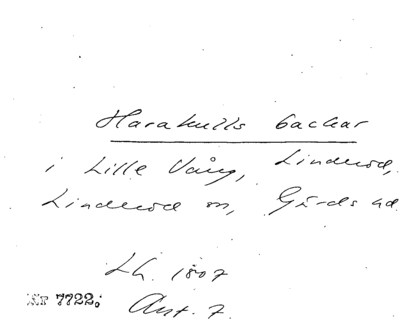 Harakulls backar
i Lille Vång, Linderöd,
Linderöd sn, Gärds hd
Lh. 1807
Nr 7722. Ant. 7.